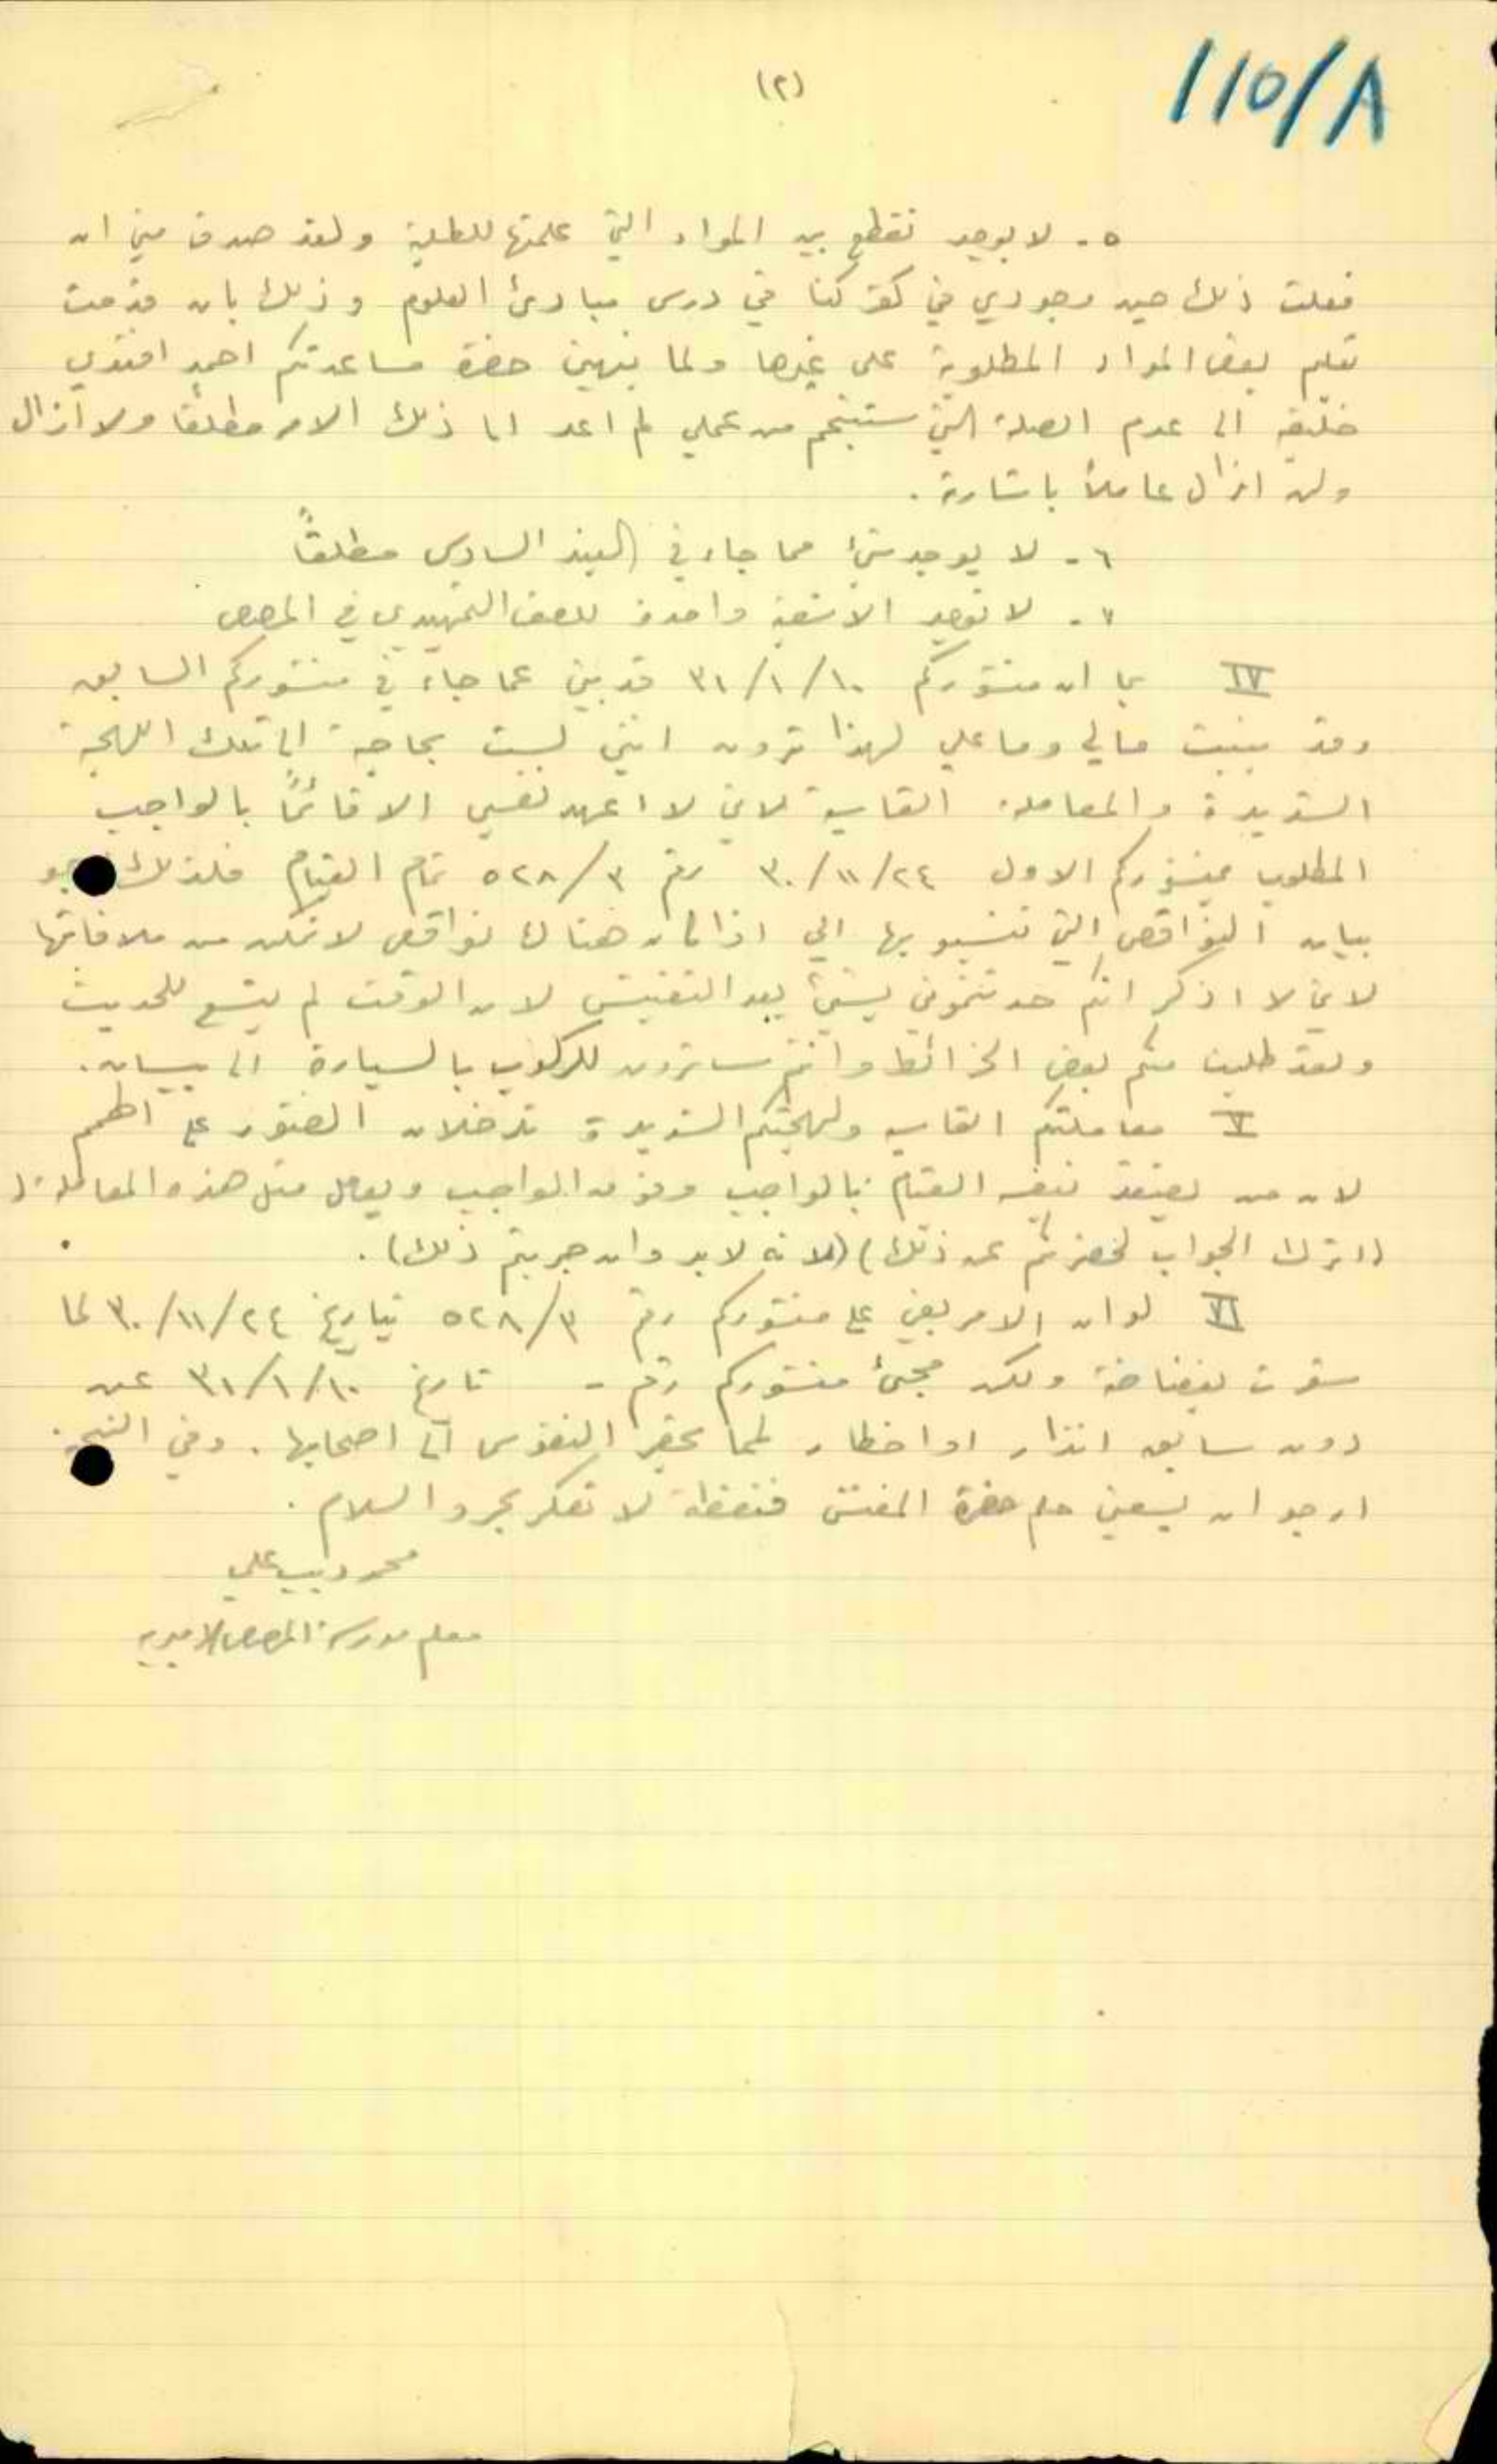 110/A
(٢)
٥ - لا يوجد تقطع بين المواد التي علمتها للطلبة ولقد صدف مني ان
فعلت ذلك حين وجودي في كفر كنا في درس مبادئ العلوم وذلك بان قدمت
تعليم بعض المواد المطلوبة على غيرها ولما نبهني حضرة مساعدتكم احمد افندي
خليفه الى عدم الصلة التي ستنجم من عملي لم اعد الى ذلك الامر مطلقا ولا أزال
ولن ازال عاملاً باشارته .
٦ - لا يوجد شئ مما جاء في البند السادس مطلقاً
٧ - لا توجد الا شعبة واحدة للصف التمهيدي في
IV بما ان منشوركم ٣١/١/١٠ قد بني عما جاء في منشوركم السابق
وقد بينت مالي وما علي لهذا ترون انني لست بحاجة الى تلك اللهجة
الشديدة والمعاملة القاسية لاني لا اعهد نفسي الا قائماً بالواجب
المطلوب بمنشوركم الاول ٣٠/١١/٢٤ رقم ٥٢٨/٣ تمام القيام فلذلك
بيان النواقص التي تنسبوها الي اذا كان هناك نواقص لاتمكن من ملافاتها
لاني لا اذكر انكم حدثتموني بشئ بعد التفتيش لان الوقت لم يتسع للحديث
ولقد طلبت منكم بعض الخرائط وانتم سائرون للركوب بالسيارة الى بيسان.
V معاملتكم القاسية ولهجتكم الشديدة تدخلان الفتور على الهمم
لان من يعتقد بنفسه القيام بالواجب وفوق الواجب ويعامل مثل هذه المعاملة
(اترك الجواب لحضرتكم عن ذلك) (لانه لابد وان جربتم ذلك).
VI لو ان الامر بقي على منشوركم رقم ٥٢٨/٣ تاريخ ٣٠/١١/٢٤ لما
شعرت بغضاضة ولكن مجئ منشوركم رقم - تاريخ ٣١/١/١٠ عن
دون سابق انذار او اخطار لمما يحقر النفوس الى اصحابها . وفي النتيجة
ارجو ان يسعني حلم حضرة المفتش فنقطة لا تعكر بحر والسلام .
محمد ديب علي
معلم مدرسة الاميرية